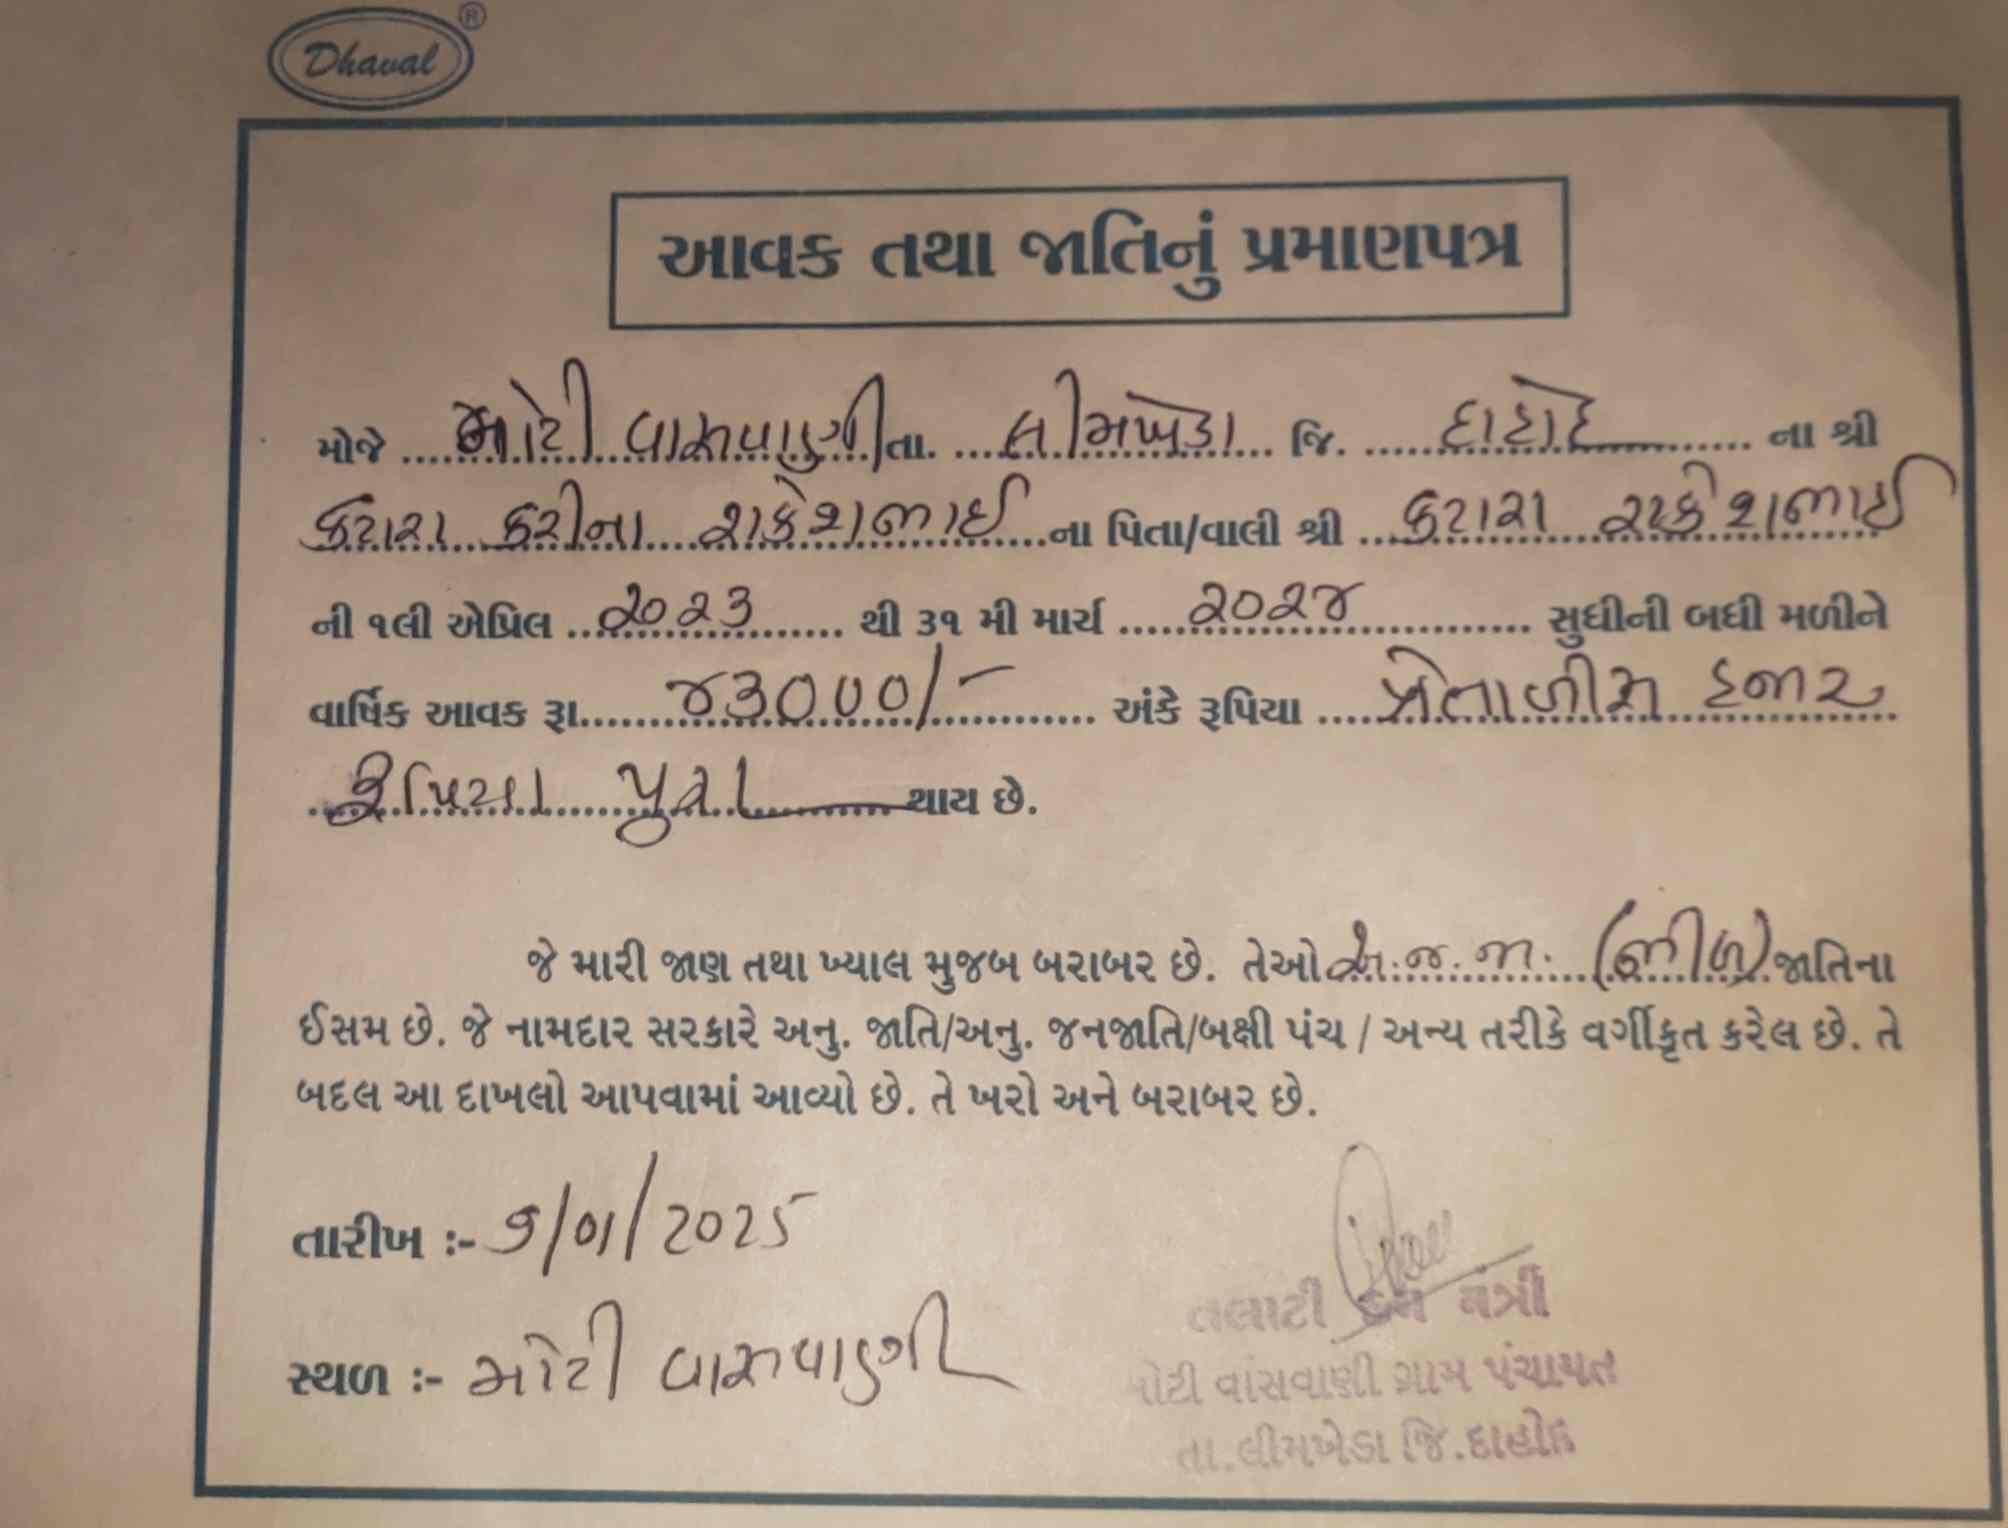 Dhaval ®
આવક તથા જાતિનું પ્રમાણપત્ર
મોજે મોટી વાસવાણી તા. લીમખેડા જિ. દાહોદ ના શ્રી
કટારા કરીના રાકેશભાઈ ના પિતા/વાલી શ્રી કટારા રાકેશભાઈ
ની ૧લી એપ્રિલ ૨૦૨૩ થી ૩૧ મી માર્ચ ૨૦૨૪ સુધીની બધી મળીને
વાર્ષિક આવક રૂા. ૪૩૦૦૦/- અંકે રૂપિયા ત્રેતાળીસ હજાર
રૂપિયા પુરા થાય છે.
જે મારી જાણ તથા ખ્યાલ મુજબ બરાબર છે. તેઓ અ.જ.જા. (ભીલ) જાતિના
ઈસમ છે. જે નામદાર સરકારે અનુ. જાતિ/અનુ. જનજાતિ/બક્ષી પંચ / અન્ય તરીકે વર્ગીકૃત કરેલ છે. તે
બદલ આ દાખલો આપવામાં આવ્યો છે. તે ખરો અને બરાબર છે.
તારીખ :- 9/01/2025
સ્થળ :- મોટી વાસવાણી
તલાટી કમ મંત્રી
મોટી વાંસવાણી ગ્રામ પંચાયત
તા.લીમખેડા જિ.દાહોદ